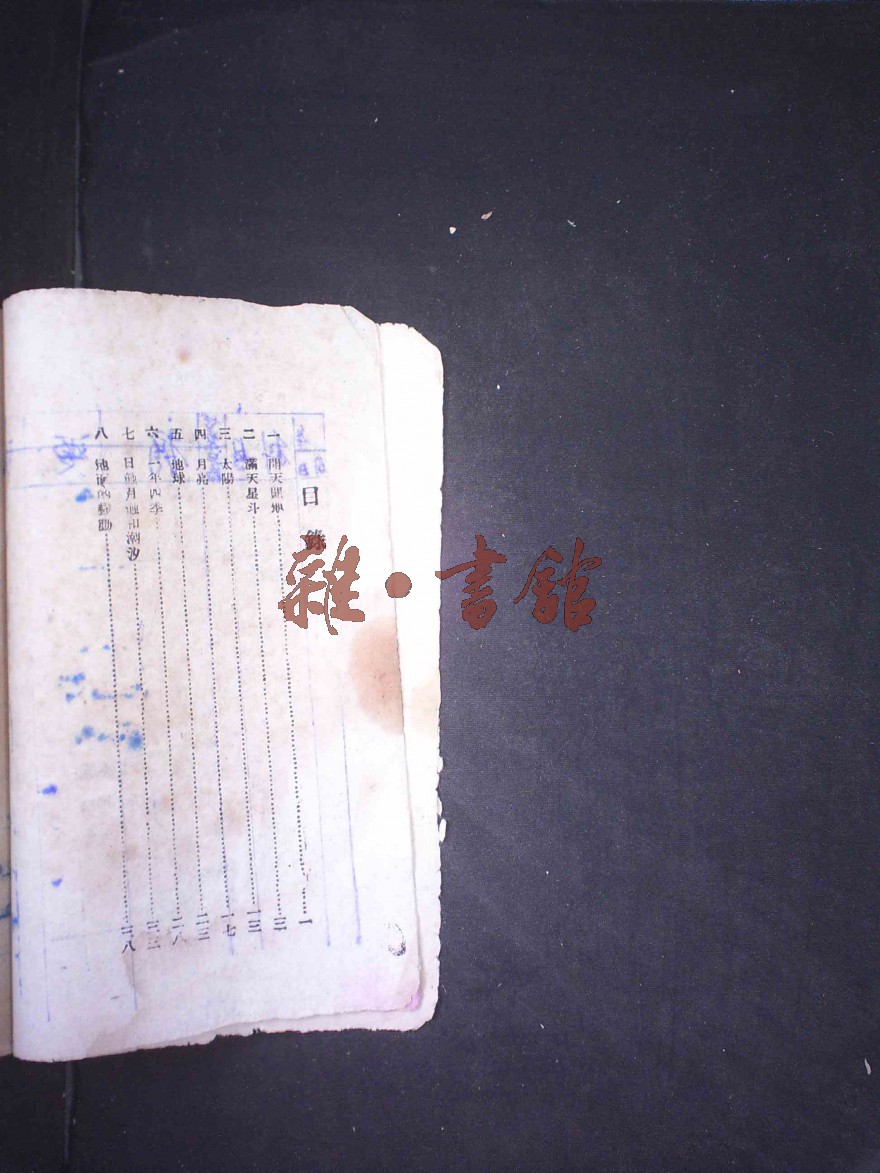 目錄
一 開天闢地 一
二 滿天星斗 三
三 太陽 一三
四 月亮 一七
五 地球 二三
六 一年四季 二八
七 日蝕月蝕和潮汐 三二
八 地面的變動 三八
雜·書館